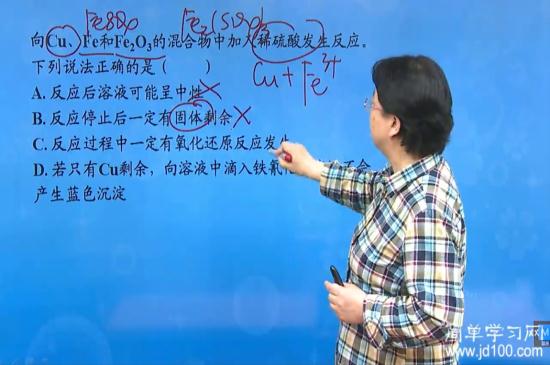 FeSO₄ Fe₂(SO₄)₃
向Cu、Fe和Fe₂O₃的混合物中加入稀硫酸发生反应。
下列说法正确的是（ ）
Cu + Fe³⁺
A. 反应后溶液可能呈中性×
B. 反应停止后一定有固体剩余×
C. 反应过程中一定有氧化还原反应发生
D. 若只有Cu剩余，向溶液中滴入铁氰化
产生蓝色沉淀
简单学习网
www.jd100.com